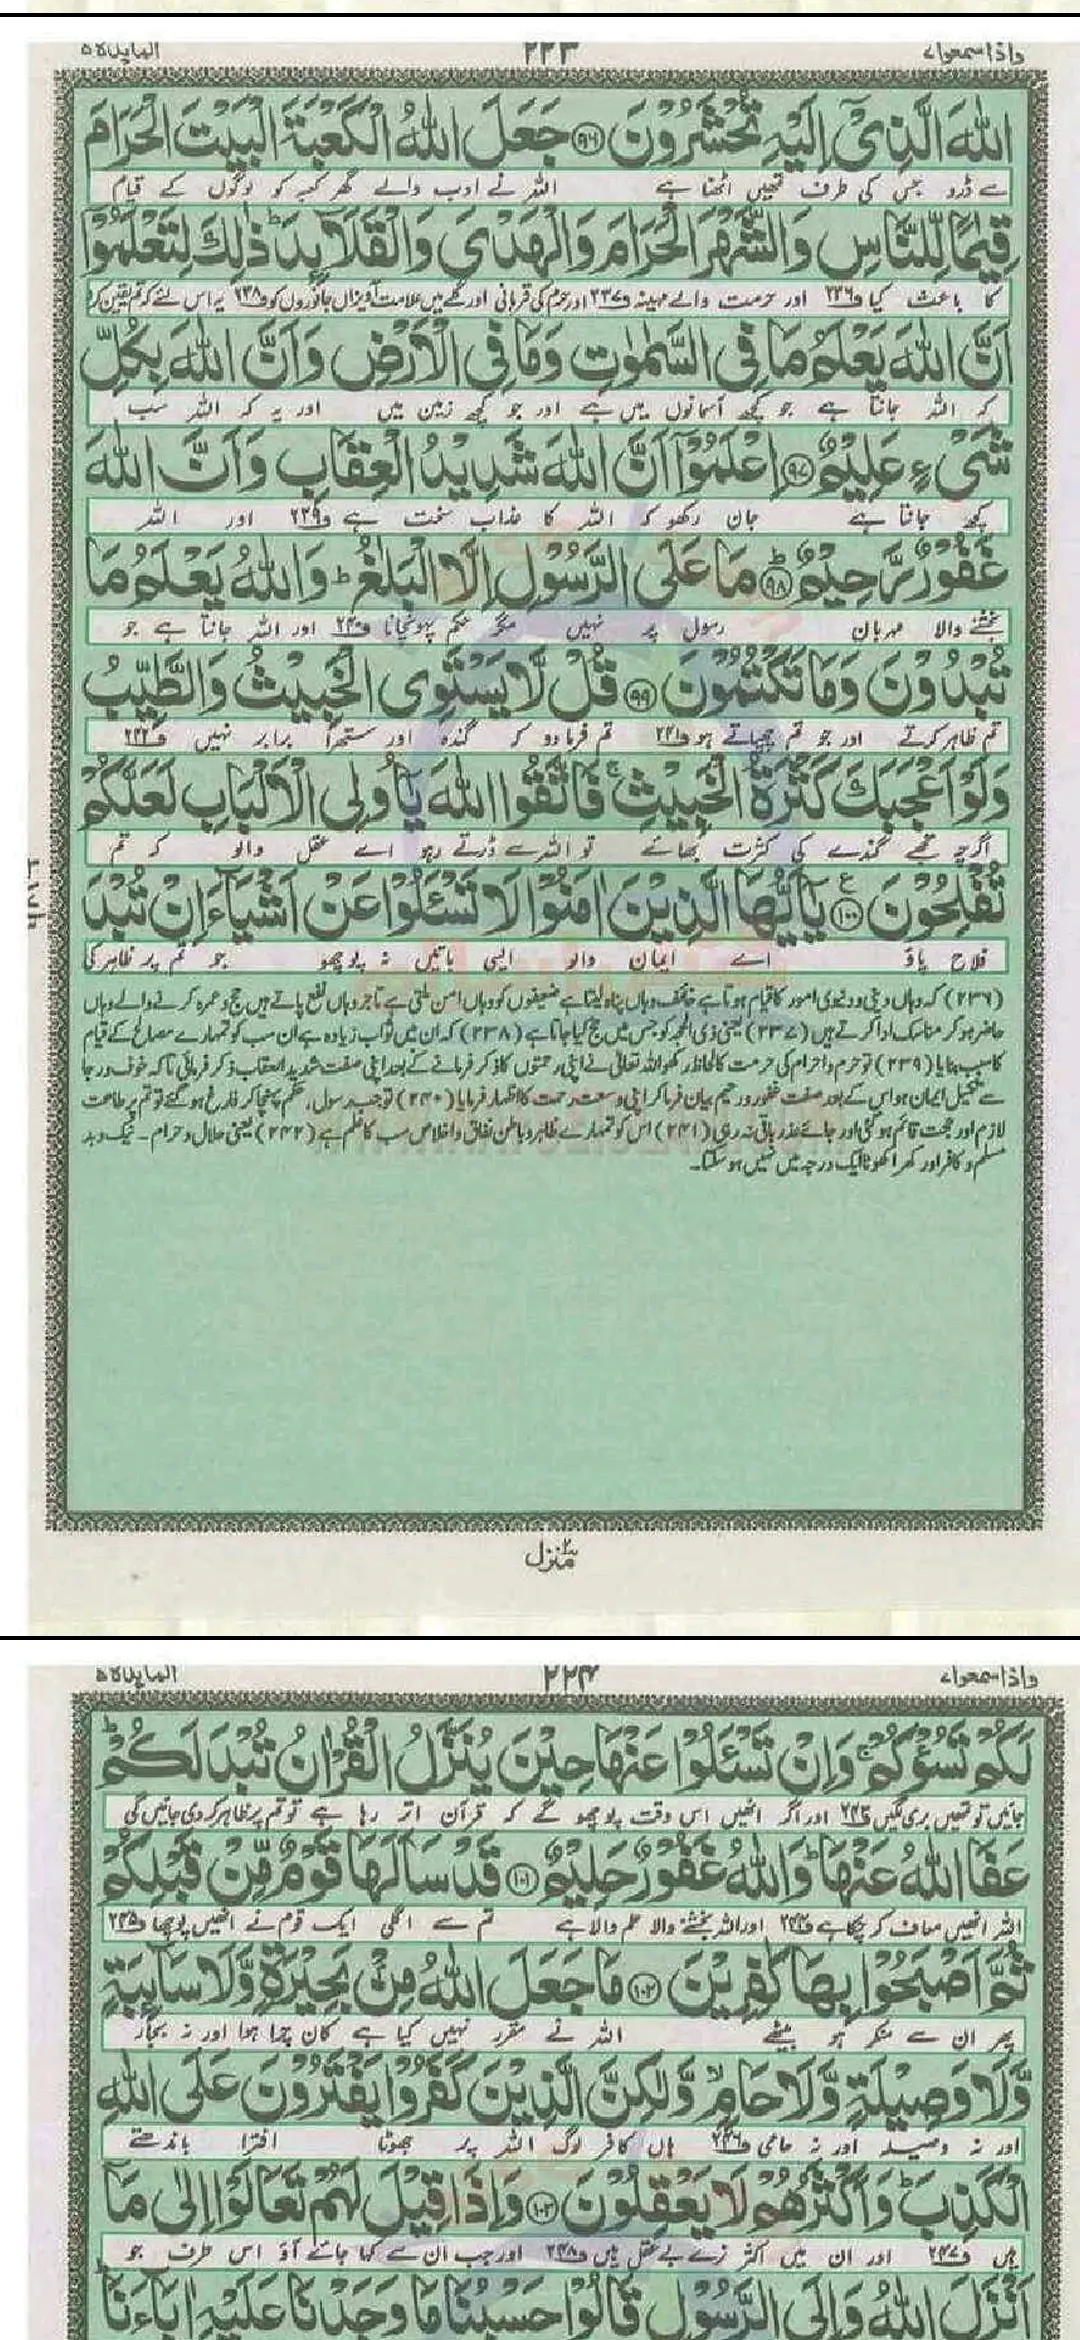 واذا سمعوا ۷ ۲۲۳ المایدة ۵
اللّٰهَ الَّذِیْۤ اِلَیْهِ تُحْشَرُوْنَ ﴿۹۶﴾ جَعَلَ اللّٰهُ الْكَعْبَةَ الْبَیْتَ الْحَرَامَ
سے ڈرو جس کی طرف تمھیں اٹھنا ہے اللہ نے ادب والے گھر کعبہ کو لوگوں کے قیام
قِیٰمًا لِّلنَّاسِ وَالشَّهْرَ الْحَرَامَ وَالْهَدْیَ وَالْقَلَآىِٕدَ ؕ ذٰلِكَ لِتَعْلَمُوْۤا
کا باعث کیا ف۲۳۶ اور حرمت والے مہینہ ف۲۳۷ اور حرم کی قربانی اور گلے میں علامت آویزاں جانوروں کو ف۲۳۸ یہ اس لئے کہ تم یقین کرو
اَنَّ اللّٰهَ یَعْلَمُ مَا فِی السَّمٰوٰتِ وَمَا فِی الْاَرْضِ وَاَنَّ اللّٰهَ بِكُلِّ
کہ اللہ جانتا ہے جو کچھ آسمانوں میں ہے اور جو کچھ زمین میں اور یہ کہ اللہ سب
شَیْءٍ عَلِیْمٌ ﴿۹۷﴾ اِعْلَمُوْۤا اَنَّ اللّٰهَ شَدِیْدُ الْعِقَابِ وَاَنَّ اللّٰهَ
کچھ جانتا ہے جان رکھو کہ اللہ کا عذاب سخت ہے ف۲۳۹ اور اللہ
غَفُوْرٌ رَّحِیْمٌ ﴿۹۸﴾ؕ مَا عَلَی الرَّسُوْلِ اِلَّا الْبَلٰغُ ؕ وَاللّٰهُ یَعْلَمُ مَا
بخشنے والا مہربان رسول پر نہیں مگر حکم پہونچانا ف۲۴۰ اور اللہ جانتا ہے جو
تُبْدُوْنَ وَمَا تَكْتُمُوْنَ ﴿۹۹﴾ قُلْ لَّا یَسْتَوِی الْخَبِیْثُ وَالطَّیِّبُ
تم ظاہر کرتے اور جو تم چھپاتے ہو ف۲۴۱ تم فرما دو کہ گندہ اور ستھرا برابر نہیں ف۲۴۲
وَلَوْ اَعْجَبَكَ كَثْرَةُ الْخَبِیْثِ ۚ فَاتَّقُوا اللّٰهَ یٰۤاُولِی الْاَلْبَابِ لَعَلَّكُمْ
اگرچہ تجھے گندے کی کثرت بھائے تو اللہ سے ڈرتے رہو اے عقل والو کہ تم
تُفْلِحُوْنَ ﴿۱۰۰﴾ع یٰۤاَیُّهَا الَّذِیْنَ اٰمَنُوْا لَا تَسْـَٔلُوْا عَنْ اَشْیَآءَ اِنْ تُبْدَ
فلاح پاؤ اے ایمان والو ایسی باتیں نہ پوچھو جو تم پر ظاہر کی
(۲۳۶) کہ وہاں دینی و دنیوی امور کا قیام ہوتا ہے خائف وہاں پناہ لیتا ہے ضعیفوں کو وہاں امن ملتی ہے تاجر وہاں نفع پاتے ہیں حج و عمرہ کرنے والے وہاں
حاضر ہو کر مناسک ادا کرتے ہیں (۲۳۷) یعنی ذی الحجہ کو جس میں حج کیا جاتا ہے (۲۳۸) کہ ان میں ثواب زیادہ ہے ان سب کو تمہارے مصالح کے قیام
کا سبب بنایا (۲۳۹) تو حرم و احرام کی حرمت کا لحاظ رکھو اللہ تعالیٰ نے اپنی رحمتوں کا ذکر فرمانے کے بعد اپنی صفت شدید العقاب ذکر فرمائی تاکہ خوف و رجا
سے تکمیل ایمان ہو اس کے بعد صفت غفور و رحیم بیان فرما کر اپنی وسعت رحمت کا اظہار فرمایا (۲۴۰) تو جب رسول حکم پہنچا کر فارغ ہو گئے تو تم پر طاعت
لازم اور حجت قائم ہو گئی اور جائے عذر باقی نہ رہی (۲۴۱) اس کو تمہارے ظاہر و باطن نفاق و اخلاص سب کا علم ہے (۲۴۲) یعنی حلال و حرام ۔ نیک و بد
مسلم و کافر اور کھرا کھوٹا ایک درجہ میں نہیں ہو سکتا۔
منزل۲
واذا سمعوا ۷ ۲۲۴ المایدة ۵
لَكُمْ تَسُؤْكُمْ ۚ وَاِنْ تَسْـَٔلُوْا عَنْهَا حِیْنَ یُنَزَّلُ الْقُرْاٰنُ تُبْدَ لَكُمْ ؕ
جائیں تو تمھیں بری لگیں ف۲۴۳ اور اگر انھیں اس وقت پوچھو گے کہ قرآن اتر رہا ہے تو تم پر ظاہر کر دی جائیں گی
عَفَا اللّٰهُ عَنْهَا ؕ وَاللّٰهُ غَفُوْرٌ حَلِیْمٌ ﴿۱۰۱﴾ قَدْ سَاَلَهَا قَوْمٌ مِّنْ قَبْلِكُمْ
اللہ انھیں معاف کر چکا ہے ف۲۴۴ اور اللہ بخشنے والا حلم والا ہے تم سے اگلی ایک قوم نے انھیں پوچھا ف۲۴۵
ثُمَّ اَصْبَحُوْا بِهَا كٰفِرِیْنَ ﴿۱۰۲﴾ مَا جَعَلَ اللّٰهُ مِنْۢ بَحِیْرَةٍ وَّلَا سَآىِٕبَةٍ
پھر ان سے منکر ہو بیٹھے اللہ نے مقرر نہیں کیا ہے کان چرا ہوا اور نہ بجار
وَّلَا وَصِیْلَةٍ وَّلَا حَامٍ ۙ وَّلٰكِنَّ الَّذِیْنَ كَفَرُوْا یَفْتَرُوْنَ عَلَی اللّٰهِ
اور نہ وصیلہ اور نہ حامی ف۲۴۶ ہاں کافر لوگ اللہ پر جھوٹا افترا باندھتے
الْكَذِبَ ؕ وَاَكْثَرُهُمْ لَا یَعْقِلُوْنَ ﴿۱۰۳﴾ وَاِذَا قِیْلَ لَهُمْ تَعَالَوْا اِلٰی مَاۤ
ہیں ف۲۴۷ اور ان میں اکثر نرے بے عقل ہیں ف۲۴۸ اور جب ان سے کہا جائے آؤ اس طرف جو
اَنْزَلَ اللّٰهُ وَاِلَی الرَّسُوْلِ قَالُوْا حَسْبُنَا مَا وَجَدْنَا عَلَیْهِ اٰبَآءَنَا ؕ